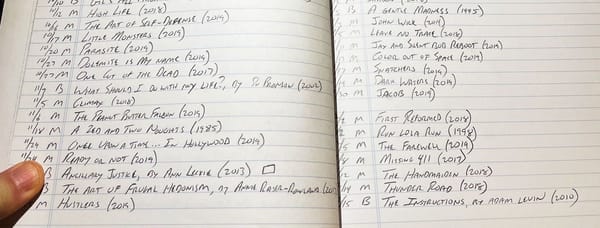 10/10 B
10/12 M HIGH LIFE (2018)
M THE ART OF SELF-DEFENSE (2019)
10/17 M LITTLE MONSTERS (2019)
10/20 M PARASITE (2019)
10/27 M DOLEMITE IS MY NAME (2019)
10/27 M ONE CUT OF THE DEAD (2017)
11/7 B WHAT SHOULD I DO WITH MY LIFE?, BY P. BRONSON (2002)
11/5 M CLIMAX (2018)
11/6 M THE PEANUT BUTTER FALCON (2019)
11/18 M A ZED AND TWO NOUGHTS (1985)
11/24 M ONCE UPON A TIME... IN HOLLYWOOD (2019)
M READY OR NOT (2019)
B ANCILLARY JUSTICE, BY ANN LECKIE (2013)
B THE ART OF FRUGAL HEDONISM, BY ANNIE RASER-ROWLAND
M HUSTLERS (2019)
B A GENTLE MADNESS (1995)
M JOHN WICK (2014)
M LEAVE NO TRACE (2018)
M JAY AND SILENT BOB REBOOT (2019)
M COLOR OUT OF SPACE (2019)
M SNATCHERS (2019)
M DARK WATERS (2019)
M JACOB (2019)
M FIRST REFORMED (2018)
M RUN LOLA RUN (1998)
M THE FAREWELL (2019)
M MISSING 411 (2017)
M THE HANDMAIDEN (2016)
M THUNDER ROAD (2018)
B THE INSTRUCTIONS, BY ADAM LEVIN (2010)